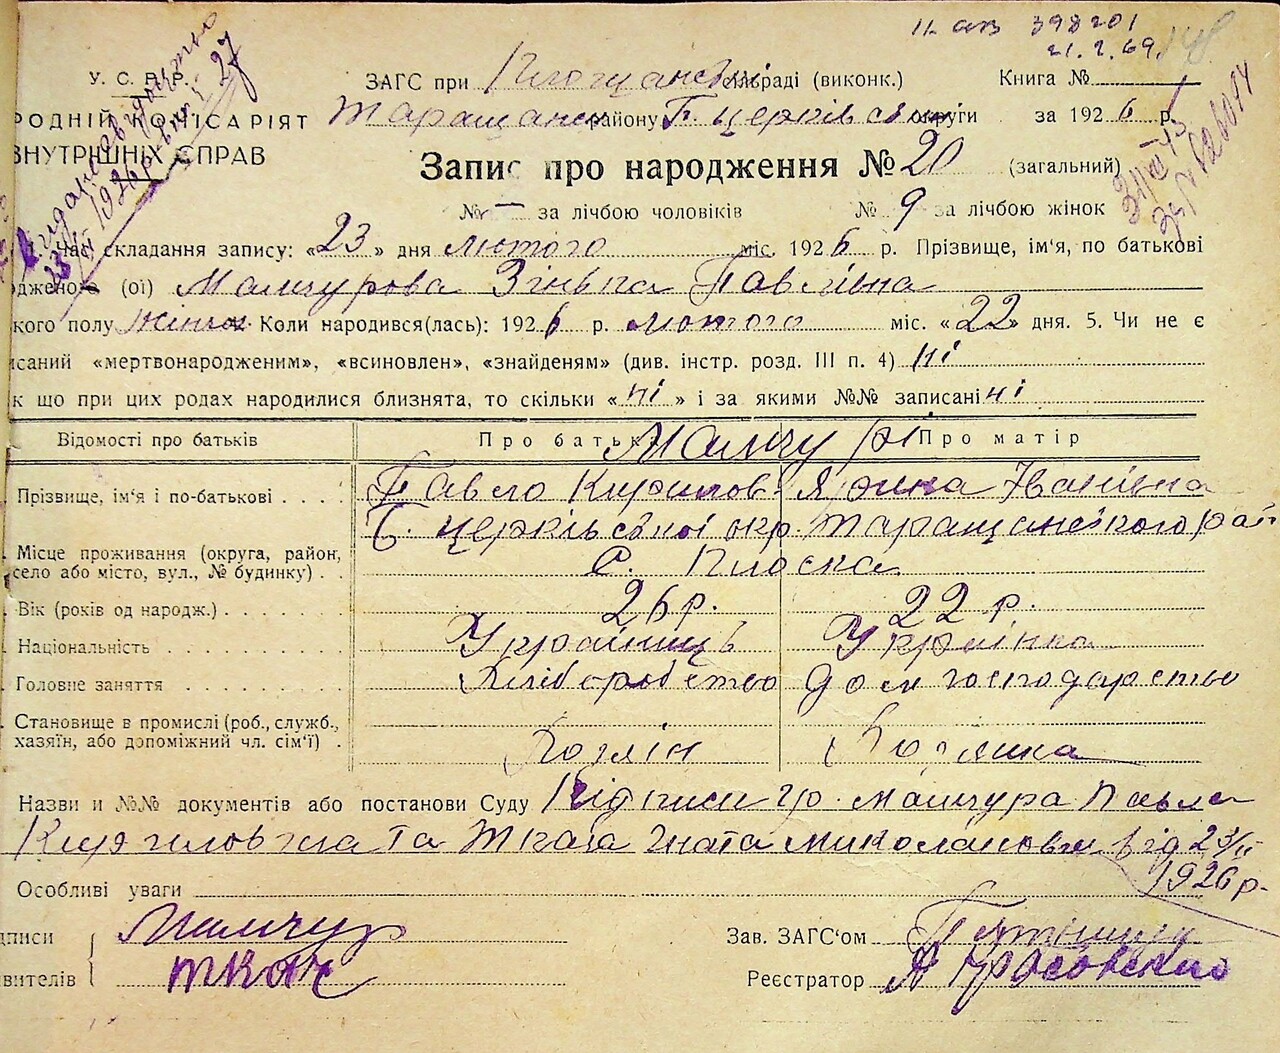 ІІ ав 398201
21.2.69
У. С. Р. Р. ЗАГС при Площанськ сельраді (виконк.) Книга №
РОДНІЙ КОМІСАРІЯТ Таращанськ району Б. церківськ округи за 1926 р.
ВНУТРІШНІХ СПРАВ
Запис про народження № 20 (загальний)
№ – за лічбою чоловіків № 9 за лічбою жінок
Час складання запису: «23» дня лютого міс. 1926 р. Прізвище, ім'я, по батькові
одженого (ої) Мамчурова Зінька Павлівна
кого полу жіноч Коли народився(лась): 1926 р. лютого міс. «22» дня. 5. Чи не є
исаний «мертвонародженим», «всиновлен», «знайденям» (див. інстр. розд. III п. 4) ні
к що при цих родах народилися близнята, то скільки «ні» і за якими №№ записані ні
Відомості про батьків Про батька Про матір
Мамчурі
Прізвище, ім'я і по-батькові Павло Кирилов. Ярина Іванівна
Б. церківської окр. Таращанського рай
Місце проживання (округа, район,
село або місто, вул., № будинку) С. Плоска
Вік (років од народж.) 26 р. 22 р.
Національність Українець Українка
Головне заняття Хліборобство дом господарство
Становище в промислі (роб., служб.,
хазяїн, або допоміжний чл. сім'ї) Хозяін Хозяйка
Назви и №№ документів або постанови Суду Підписи гр. Мамчура Павла
Кириловича та Ткача Гната Миколайовича від 23/II
1926 р.
Особливі уваги
дписи Мамчур Зав. ЗАГС'ом
вителів ткач Реєстратор